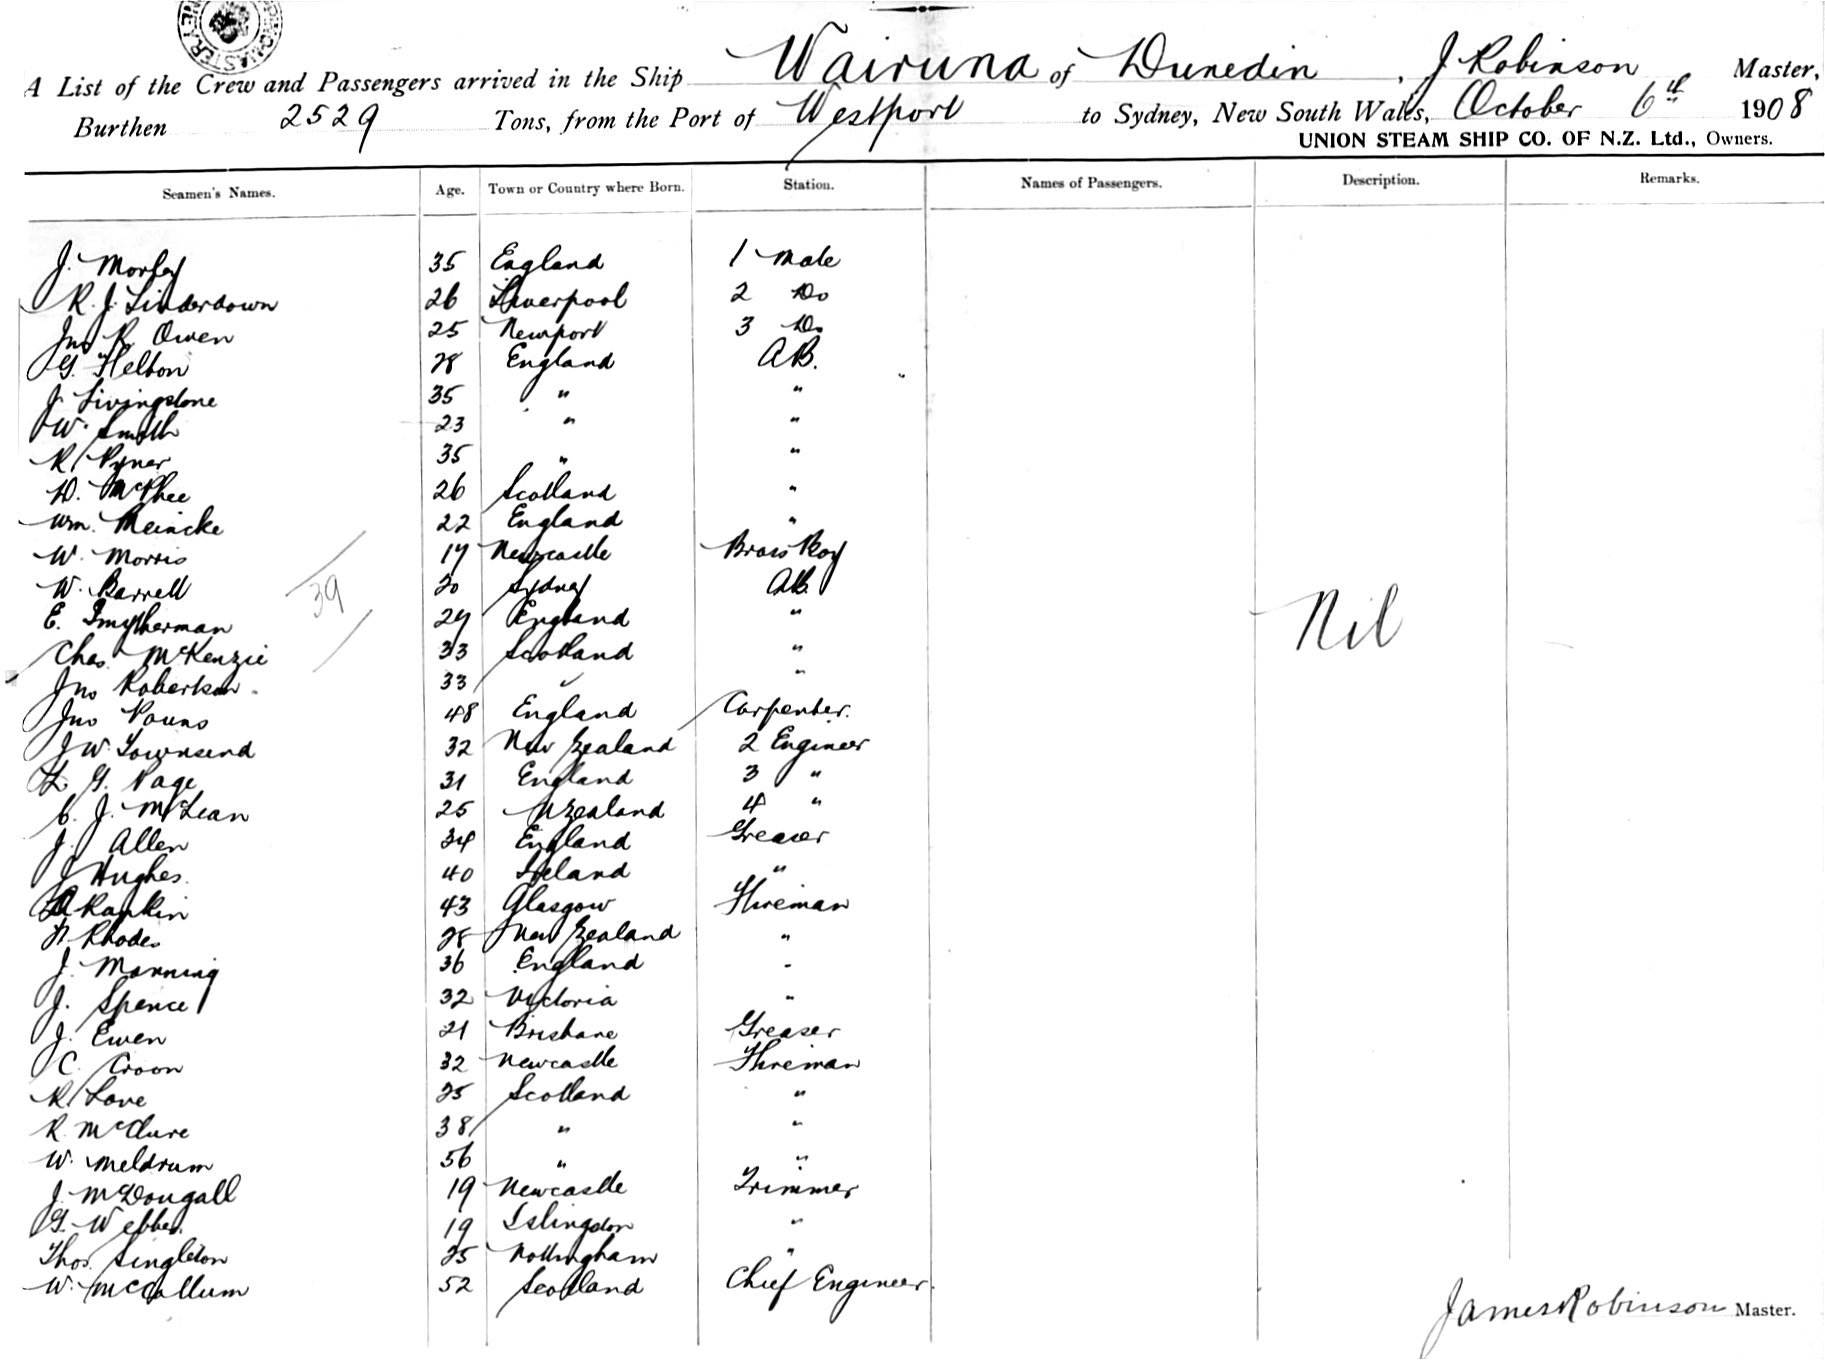 A List of the Crew and Passengers arrived in the Ship Wairuna of Dunedin, J Robinson Master,
Burthen 2529 Tons, from the Port of Westport to Sydney, New South Wales, October 6th 1908
UNION STEAM SHIP CO. OF N.Z. Ltd., Owners.
Seamen's Names. Age. Town or Country where Born. Station. Names of Passengers. Description. Remarks.
J. Morley 35 England 1 Mate
R. J. Linderdown 26 Liverpool 2 Do
Jno R Owen 25 Newport 3 Do
G. Helbon 28 England AB.
J. Livingstone 35 " "
W. Smith 23 " "
R Pyner 35 " "
D. McPhee 26 Scotland "
Wm. Meincke 22 England "
W. Morris 17 Newcastle Brass Boy
W. Barrell 20 Sydney AB.
39
E. Smytherman 29 England "
Nil
Chas. McKenzie 33 Scotland "
Jno Robertson 33 " "
Jno 48 England Carpenter.
J W Townsend 32 New Zealand 2 Engineer
L. G. Page 31 England 3 "
C. J. McLean 25 N Zealand 4 "
J. Allen 34 England Greaser
J Hughes. 40 Ireland "
A Rankin 43 Glasgow Fireman
F. Rhodes 28 New Zealand "
J. Manning 36 England "
J. Spence 32 Victoria "
J. Ewen 21 Brisbane Greaser
C. Croon 32 Newcastle Fireman
R Love 25 Scotland "
R. McClure 38 " "
W. Meldrum 56 " "
J. McDougall 19 Newcastle Trimmer
G. Webber. 19 Islington "
Thos. Singleton 25 Nottingham "
W. McCallum 52 Scotland Chief Engineer.
James Robinson Master.